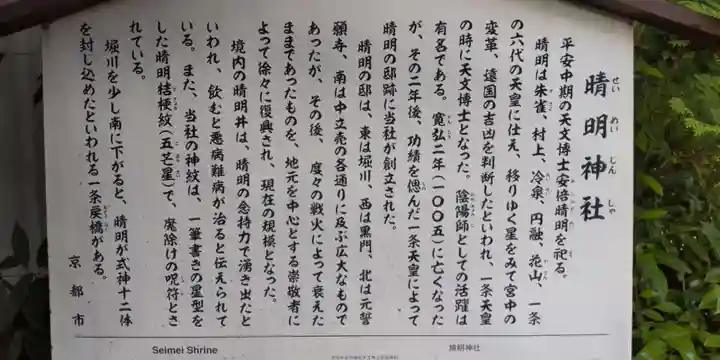 晴明神社
せいめいじんしゃ
平安中期の天文博士安倍晴明を祀る。
晴明は朱雀、村上、冷泉、円融、花山、一条
の六代の天皇に仕え、移りゆく星をみて宮中の
変革、遠国の吉凶を判断したといわれ、一条天皇
の時に天文博士となった。陰陽師としての活躍は
有名である。寛弘二年(一〇〇五)に亡くなった
が、その二年後、功績を偲んだ一条天皇によって
晴明の邸跡に当社が創立された。
晴明の邸は、東は堀川、西は黒門、北は元誓
願寺、南は中立売の各通りに及ぶ広大なもので
あったが、その後、度々の戦火によって衰えた
ままであったものを、地元を中心とする崇敬者に
よって徐々に復興され、現在の規模となった。
境内の晴明井は、晴明の念持力で湧き出たと
いわれ、飲むと悪病難病が治ると伝えられて
いる。また、当社の神紋は、一筆書きの星型を
した晴明桔梗紋(五芒星)で、魔除けの呪符とさ
れている。
堀川を少し南に下がると、晴明が式神十二体
を封じ込めたといわれる一条戻橋がある。
京都市
Seimei Shrine
晴明神社